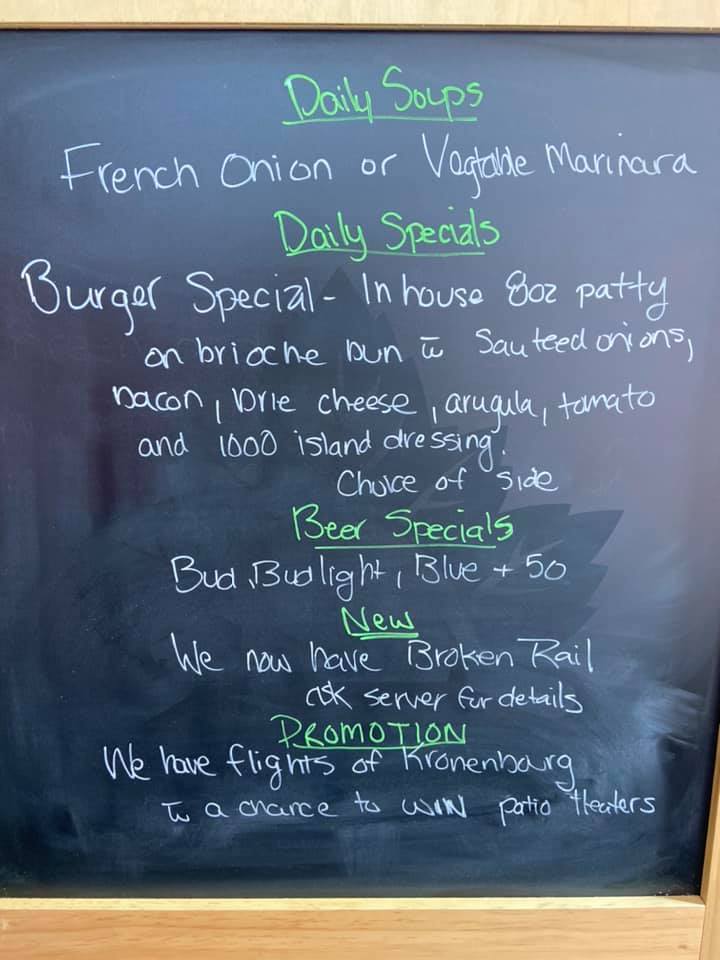 Daily Soups
French Onion or Vegtable Marinara
Daily Specials
Burger Special - In house 8oz patty
on brioche bun w̅ Sauteed onions,
bacon, brie cheese, arugula, tomato
and 1000 island dressing.
Choice of side
Beer Specials
Bud, Bud light, Blue + 50
New
We now have Broken Rail
ask server for details
PROMOTION
We have flights of Kronenbourg
w̅ a chance to WIN patio heaters